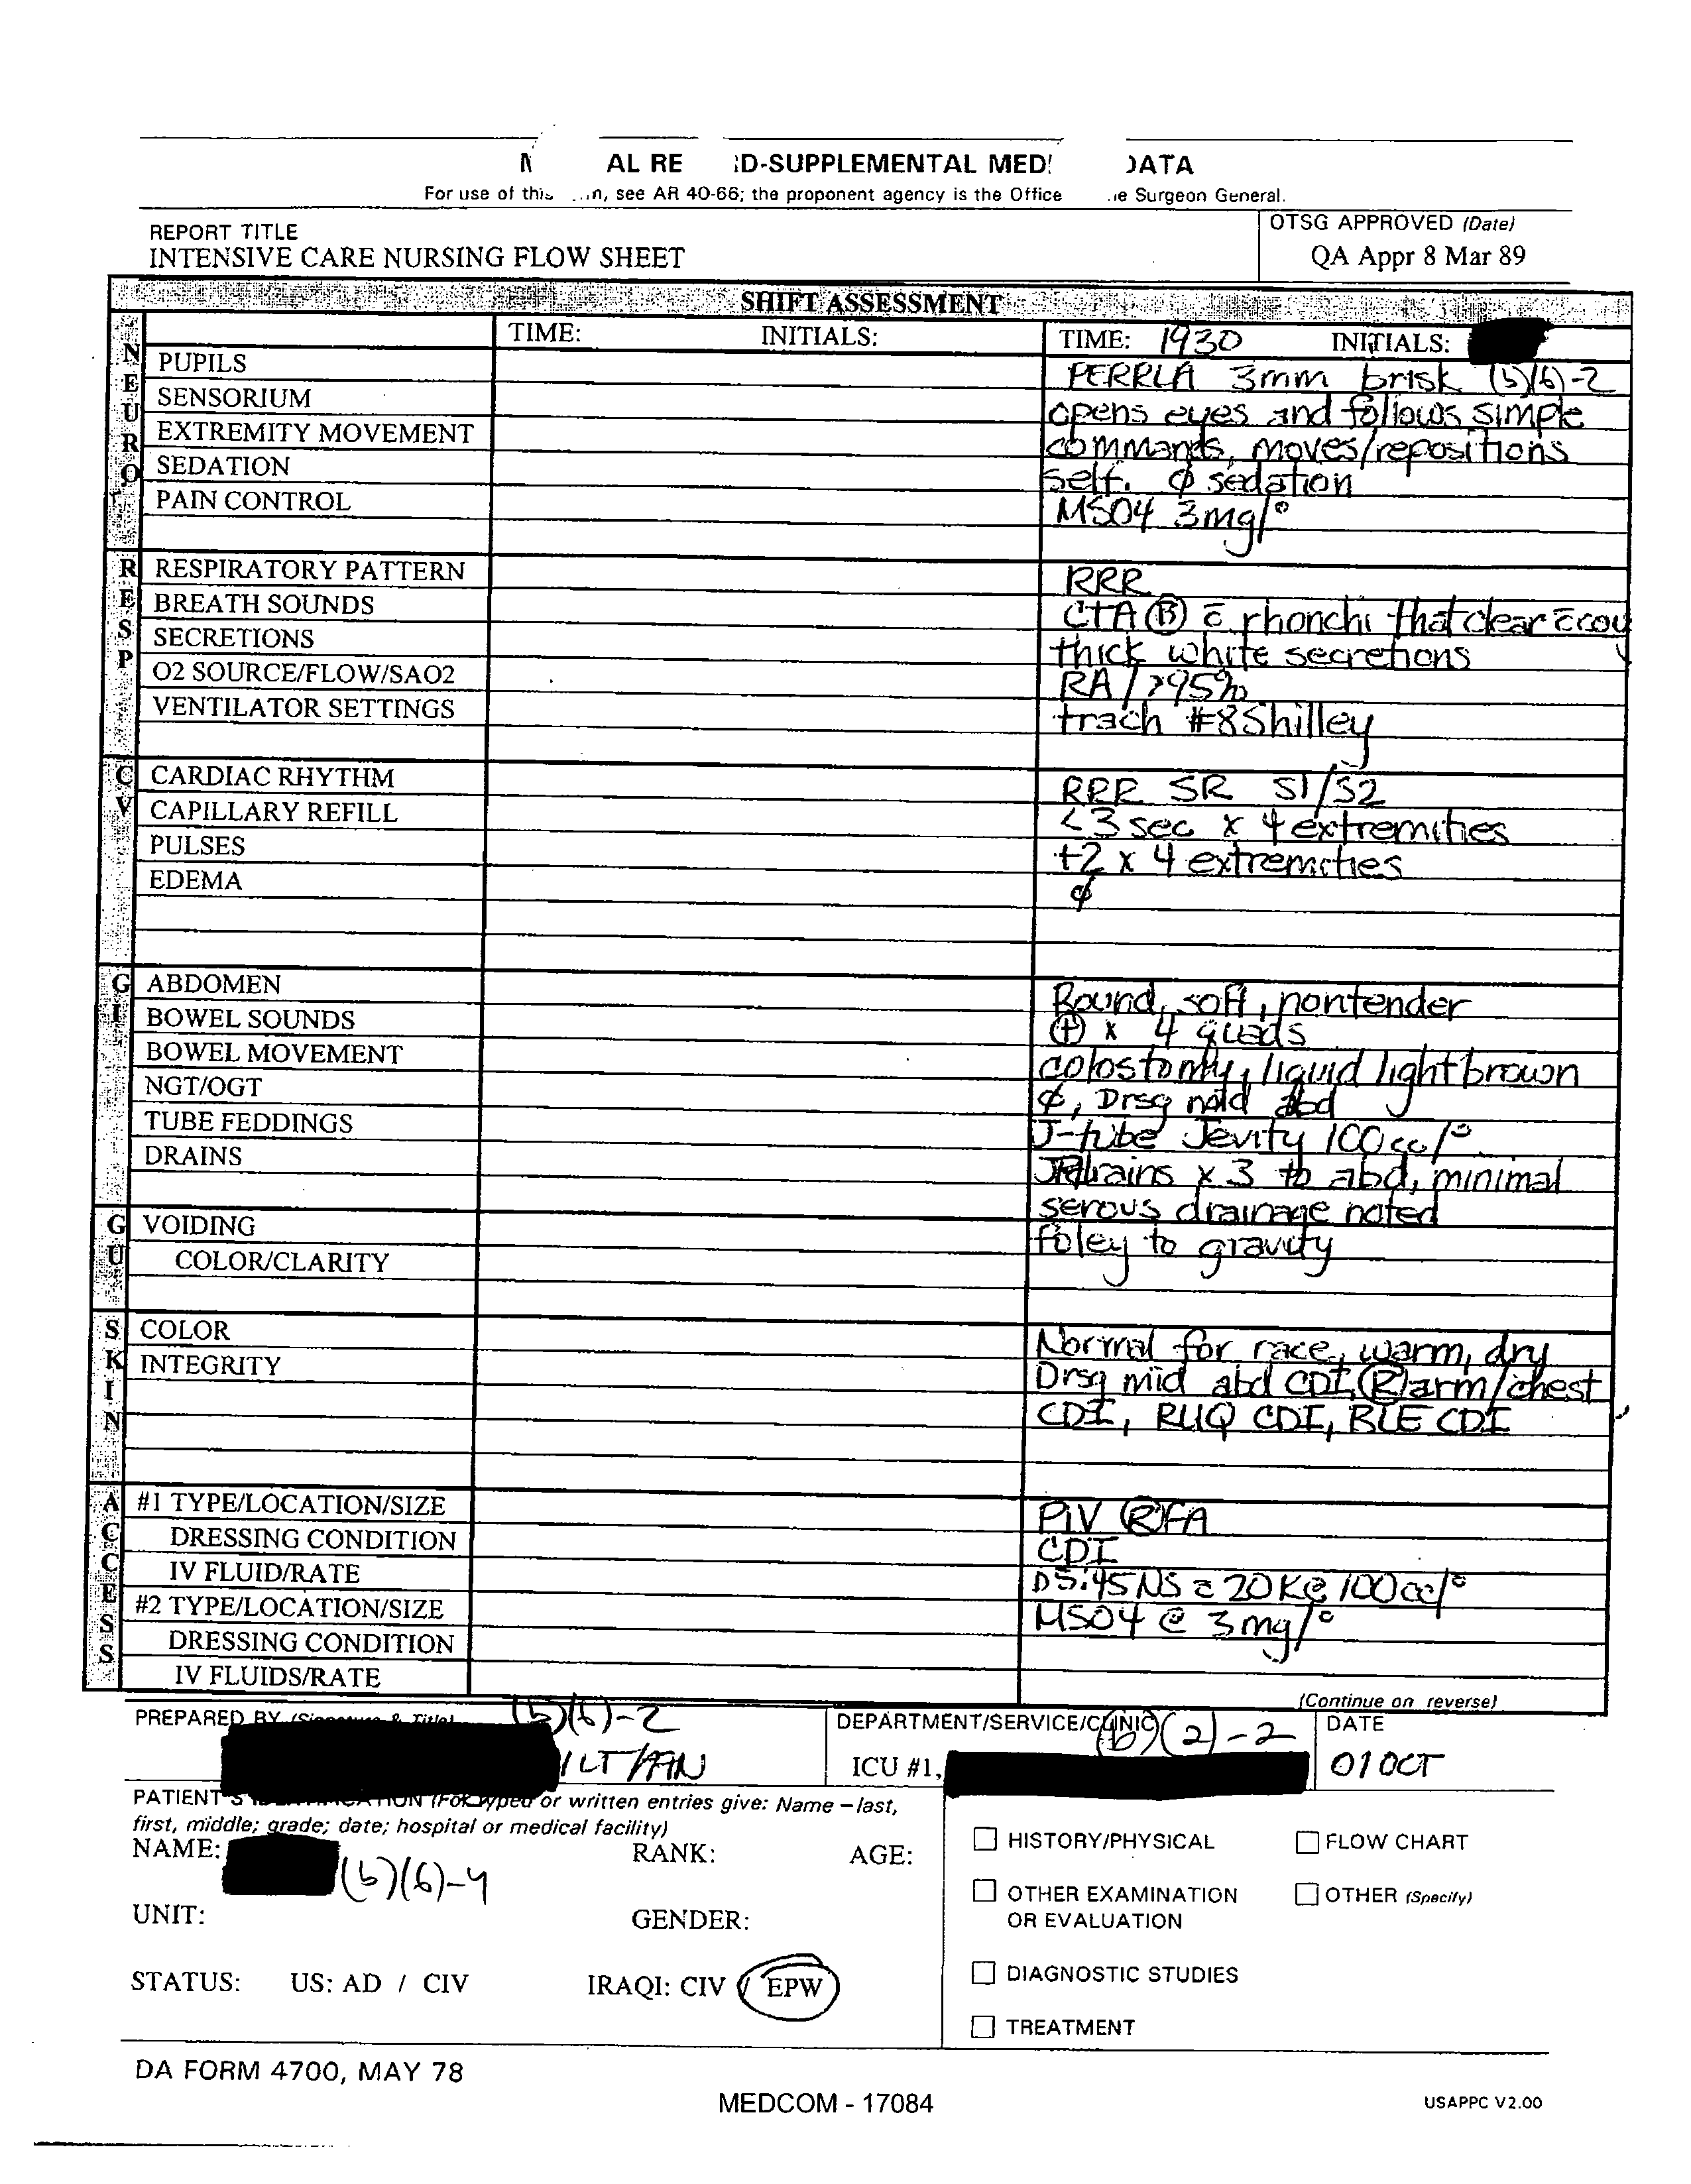 AL RE D-SUPPLEMENTAL MED DATA
For use of this n, see AR 40-66; the proponent agency is the Office e Surgeon General.
REPORT TITLE
INTENSIVE CARE NURSING FLOW SHEET
OTSG APPROVED (Date)
QA Appr 8 Mar 89
SHIFT ASSESSMENT
NEURO
TIME: INITIALS: TIME: 1930 INITIALS:
PUPILS PERRLA 3mm brisk (b)(6)-2
SENSORIUM opens eyes and follows simple
EXTREMITY MOVEMENT commands, moves/repositions
SEDATION self. ϕ sedation
PAIN CONTROL MSO4 3mg/°
RESP
RESPIRATORY PATTERN RRR
BREATH SOUNDS CTA Ⓑ c̄ rhonchi that clear c̄ cough
SECRETIONS thick white secretions
O2 SOURCE/FLOW/SAO2 RA / >95%
VENTILATOR SETTINGS trach #8 Shilley
CV
CARDIAC RHYTHM RRR SR S1/S2
CAPILLARY REFILL <3 sec x 4 extremities
PULSES +2 x 4 extremities
EDEMA ϕ
GI
ABDOMEN Round, soft, nontender
BOWEL SOUNDS ⊕ x 4 quads
BOWEL MOVEMENT colostomy, liquid light brown
NGT/OGT ϕ, Drsg abd
TUBE FEDDINGS J-tube Jevity 100cc/°
DRAINS JP drains x 3 to abd, minimal
serous drainage noted
GU
VOIDING foley to gravity
COLOR/CLARITY
SKIN
COLOR Normal for race, warm, dry
INTEGRITY Drsg mid abd CDI, Ⓡ arm/chest
CDI, RUQ CDI, BLE CDI
ACCESS
#1 TYPE/LOCATION/SIZE PIV Ⓡ FA
DRESSING CONDITION CDI
IV FLUID/RATE D5.45NS c̄ 20K @ 100cc/°
#2 TYPE/LOCATION/SIZE MSO4 @ 3mg/°
DRESSING CONDITION
IV FLUIDS/RATE
(Continue on reverse)
PREPARED BY (Signature & Title) (b)(6)-2
1LT/AN
DEPARTMENT/SERVICE/CLINIC (b)(2)-2
ICU #1,
DATE
01 OCT
PATIENT'S IDENTIFICATION (For typed or written entries give: Name – last,
first, middle; grade; date; hospital or medical facility)
NAME: (b)(6)-4 RANK: AGE:
UNIT: GENDER:
STATUS: US: AD / CIV IRAQI: CIV / EPW
HISTORY/PHYSICAL
FLOW CHART
OTHER EXAMINATION
OR EVALUATION
OTHER (Specify)
DIAGNOSTIC STUDIES
TREATMENT
DA FORM 4700, MAY 78
MEDCOM - 17084
USAPPC V2.00